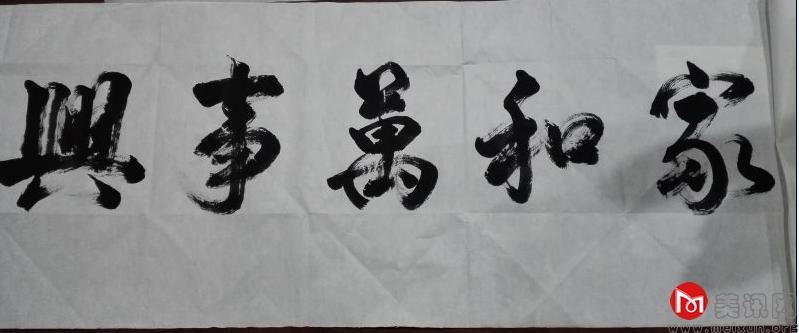 家和萬事興
美讯网
www.meixun.org